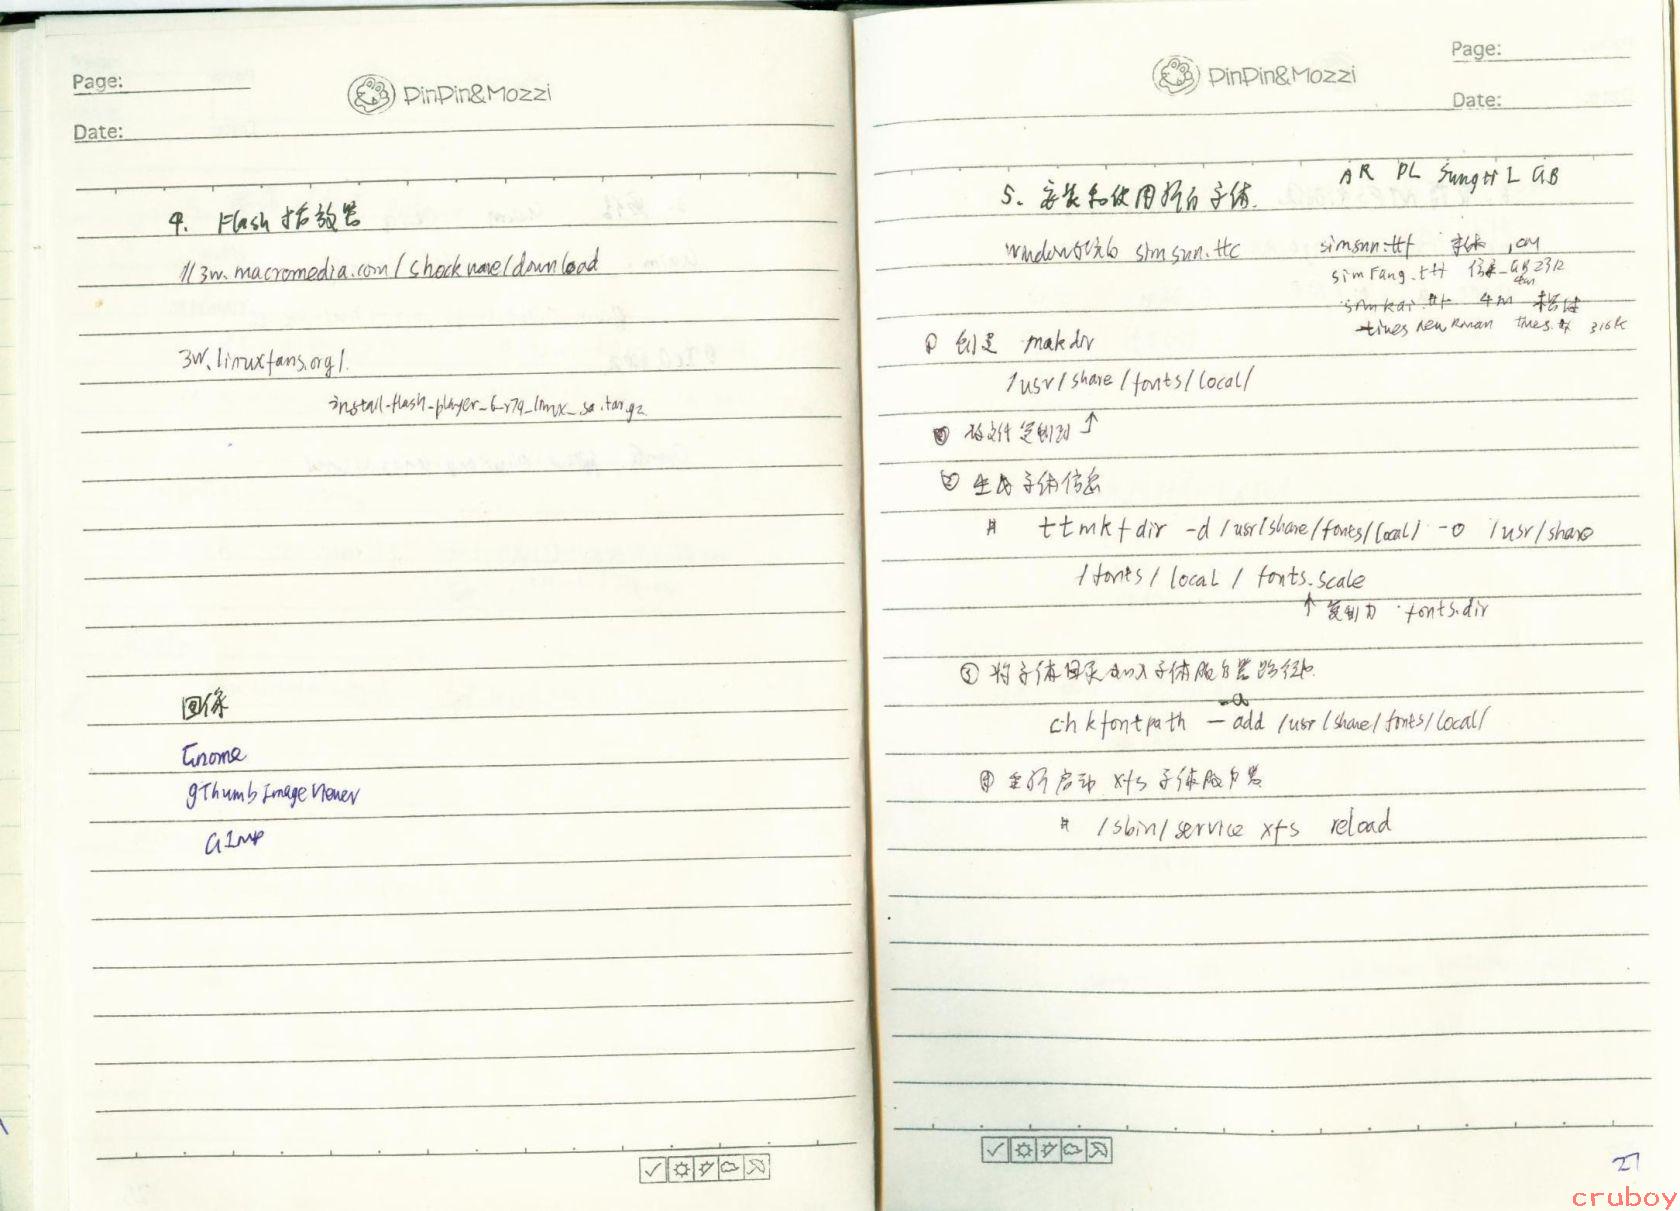 Page:
PinPin&Mozzi
Date:
4. Flash 播放器
//3w.macromedia.com/shockwave/download
3w.linuxfans.org/.
install-flash-player_6_r79_linux_sa.tar.gz
图像
Gnome
gThumb Image Viewer
GIMP
Page:
PinPin&Mozzi
Date:
AR PL SungtiL GB
5. 安装和使用新的字体.
windows simsun.ttc
simsun.ttf 宋体
simFang.ttf GB2312
simkai.ttf 4M 楷体
times new Roman times.ttf 316K
① 创建 makdir
/usr/share/fonts/local/
将文件复制到 ↑
② 生成字体信息
# ttmkfdir -d /usr/share/fonts/local/ -o /usr/share
/fonts/local/fonts.scale
↑ 复制为 fonts.dir
③ 将字体目录加入字体服务器路径中.
-a
chkfontpath —add /usr/share/fonts/local/
④ 重新启动 xfs 字体服务器
# /sbin/service xfs reload
27
cruboy